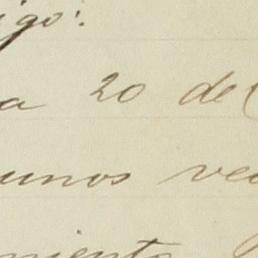 igo:
a 20 de
unos ve
miento